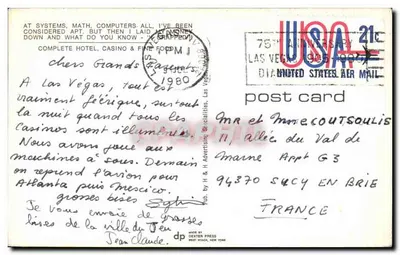 AT SYSTEMS, MATH, COMPUTERS ALL, I'VE BEEN
CONSIDERED APT. BUT THEN I LAID MONEY
DOWN AND WHAT DO YOU KNOW -
COMPLETE HOTEL, CASINO &
USA 21c
UNITED STATES AIR MAIL
75TH ANNIVERSARY
LAS VEGAS
PM
1980
post card
chers Grands Parents
A Las Vegas, tout est
vraiment féérique, surtout
la nuit quand tous les
Casinos sont illuminés.
Nous avons joué aux
machines à sous. Demain
on reprend l'avion pour
Atlanta puis Mexico.
grosses bises
Je vous envoie de grosses
bises de la ville du Jeu
Jean Claude.
Mr et Mme COUTSOULIS
11, Allée du Val de
Marne Appt G3
94370 SUCY EN BRIE
FRANCE
Pub. by H & H Advertising Specialties, Las Vegas
dp
MADE BY
DEXTER PRESS
WEST NYACK, NEW YORK